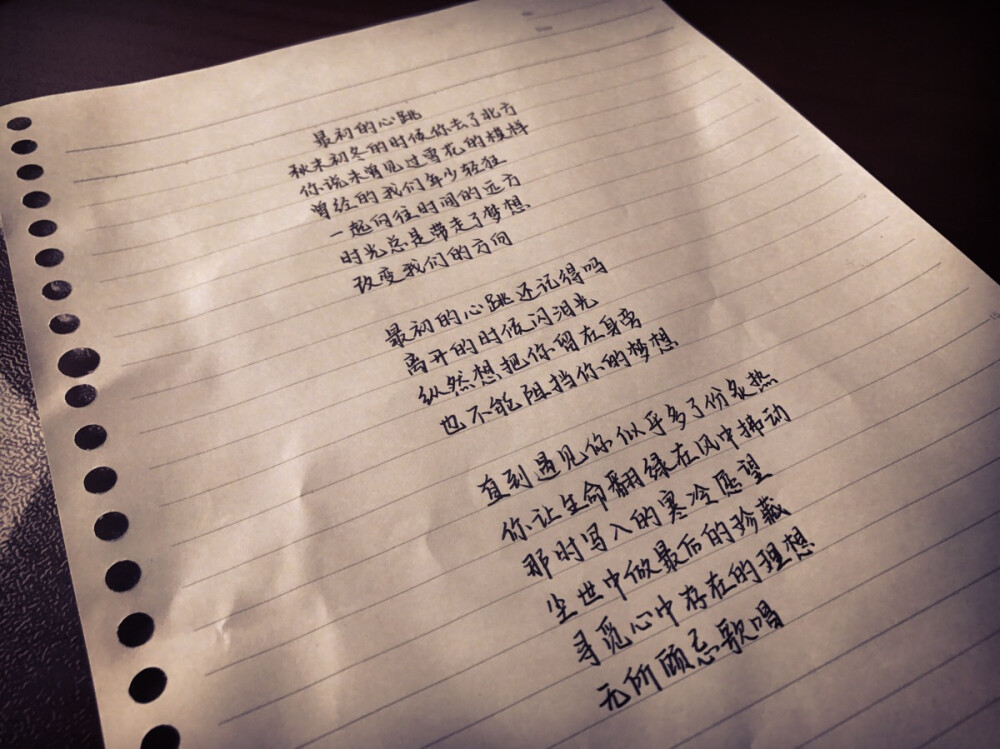 最初的心跳
秋末初冬的时候你去了北方
你说未曾见过雪花的模样
曾经的我们年少轻狂
一起向往时间的远方
时光总是带走了梦想
改变我们的方向
最初的心跳还记得吗
离开的时候闪泪光
纵然想把你留在身旁
也不能阻挡你的梦想
直到遇见你似乎多了份炙热
你让生命翻绿在风中拂动
那时写入的寒冷愿望
尘世中做最后的珍藏
寻觅心中存在的理想
无所顾忌歌唱